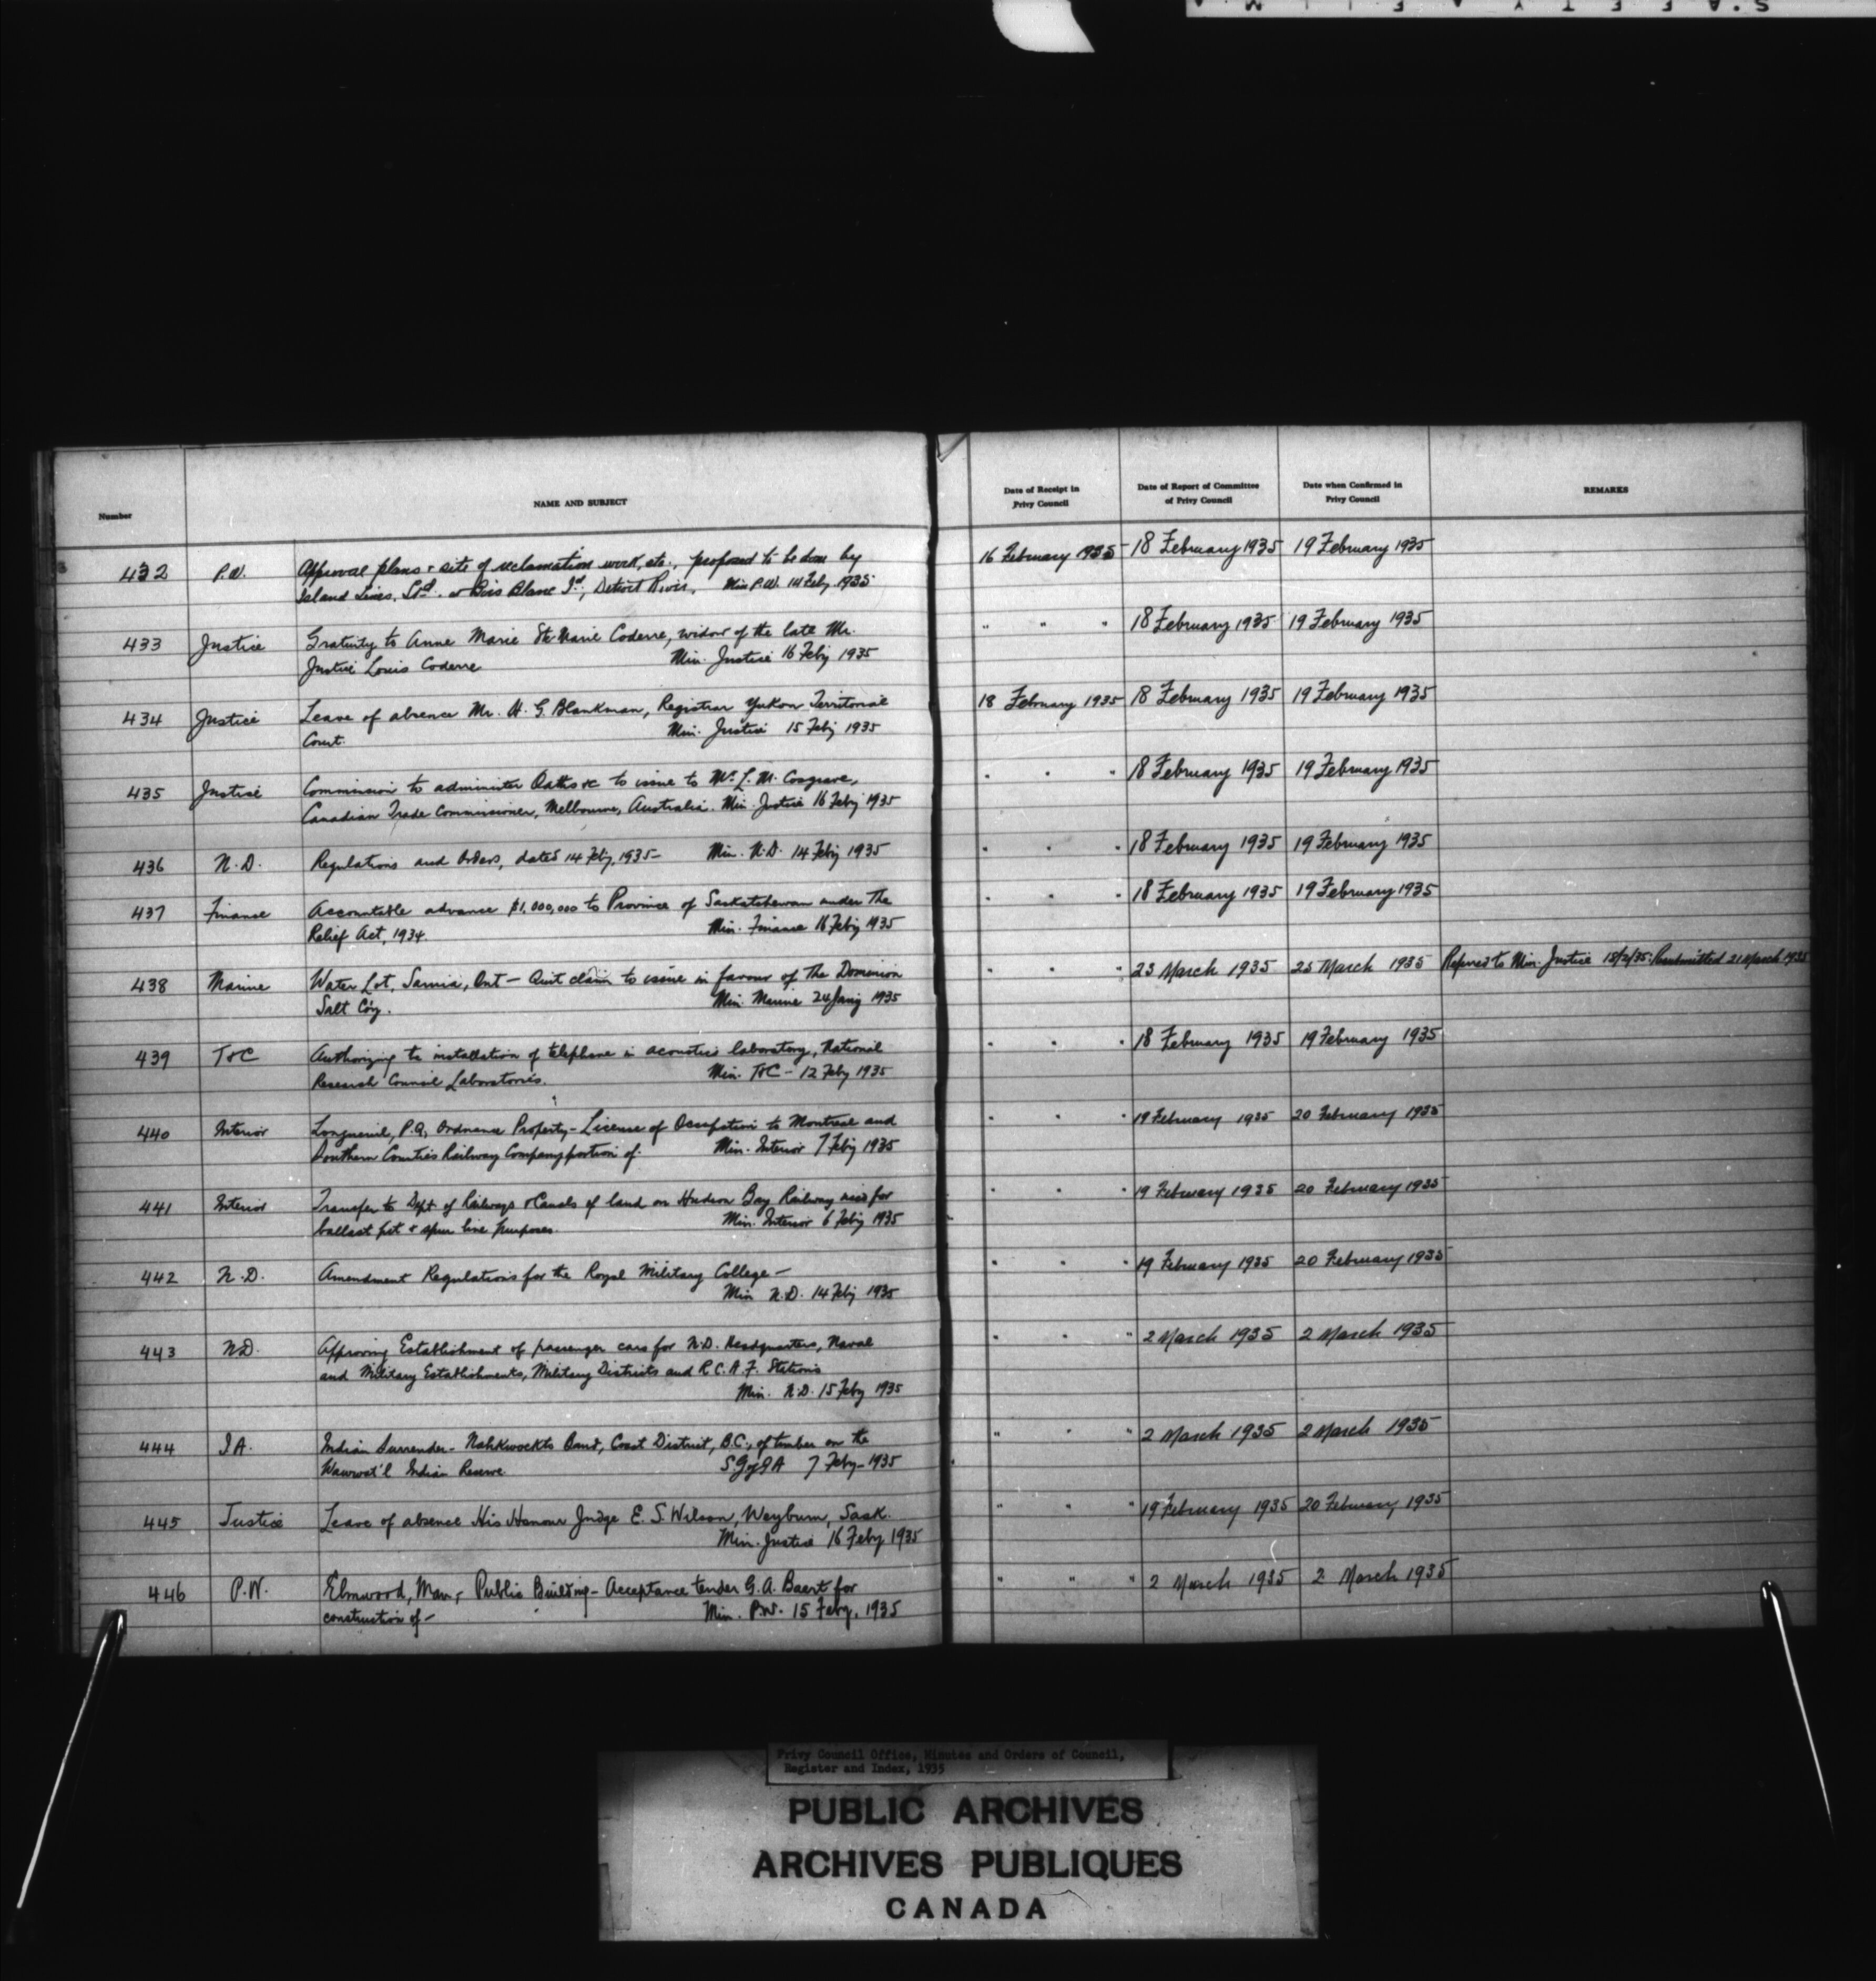 SAFETY FILM
Number
NAME AND SUBJECT
Date of Receipt in Privy Council
Date of Report of Committee of Privy Council
Date when Confirmed in Privy Council
REMARKS
432 P.W. Approval plans & site of reclamation work, etc., proposed to be done by 16 February 1935 18 February 1935 19 February 1935
Island Lines, Ltd. at Bois Blanc Id, Detroit River. Min P.W. 14 Feby. 1935
433 Justice Gratuity to Anne Marie Ste Marie Coderre, widow of the late Mr. " " " 18 February 1935 19 February 1935
Justice Louis Coderre Min. Justice 16 Feby 1935
434 Justice Leave of absence Mr. H. G. Blankman, Registrar Yukon Territorial 18 February 1935 18 February 1935 19 February 1935
Court. Min. Justice 15 Feby 1935
435 Justice Commission to administer Oaths &c to issue to Mr. L. M. Cosgrave, " " " 18 February 1935 19 February 1935
Canadian Trade Commissioner, Melbourne, Australia. Min. Justice 16 Feby 1935
436 N.D. Regulations and Orders, dated 14 Feby, 1935— Min. N.D. 14 Feby 1935 " " " 18 February 1935 19 February 1935
437 Finance Accountable advance $1,000,000 to Province of Saskatchewan under The " " " 18 February 1935 19 February 1935
Relief Act, 1934. Min. Finance 16 Feby 1935
438 Marine Water Lot, Sarnia, Ont — Quit claim to issue in favour of The Dominion " " " 23 March 1935 25 March 1935 Referred to Min. Justice 18/2/35. Resubmitted 21 March 1935
Salt Co'y. Min. Marine 24 Jany 1935
439 T&C Authorizing to installation of telephone in acoustics laboratory, National " " " 18 February 1935 19 February 1935
Research Council Laboratories. Min. T&C — 12 Feby 1935
440 Interior Longueuil, P.Q., Ordnance Property — License of Occupation to Montreal and " " " 19 February 1935 20 February 1935
Southern Counties Railway Company portion of. Min. Interior 7 Feby 1935
441 Interior Transfer to Dept of Railways & Canals of land on Hudson Bay Railway for " " " 19 February 1935 20 February 1935
ballast pit & spur line purposes. Min. Interior 6 Feby 1935
442 N.D. Amendment Regulations for the Royal Military College — " " " 19 February 1935 20 February 1935
Min N.D. 14 Feby 1935
443 N.D. Approving Establishment of passenger cars for N.D. Headquarters, Naval " " " 2 March 1935 2 March 1935
and Military Establishments, Military Districts and R.C.A.F. Stations
Min. N.D. 15 Feby 1935
444 I.A. Indian Surrender — Nahkwockto Band, Coast District, B.C., of timber on the " " " 2 March 1935 2 March 1935
Wawwat'l Indian Reserve S G of I A 7 Feby — 1935
445 Justice Leave of absence His Honour Judge E. S. Wilson, Weyburn, Sask. " " " 19 February 1935 20 February 1935
Min. Justice 16 Feby 1935
446 P.W. Elmwood, Man, Public Building — Acceptance tender G. A. Baert for " " " 2 March 1935 2 March 1935
construction of — Min. P.W. 15 Feby, 1935
Privy Council Office, Minutes and Orders of Council,
Register and Index, 1935
PUBLIC ARCHIVES
ARCHIVES PUBLIQUES
CANADA